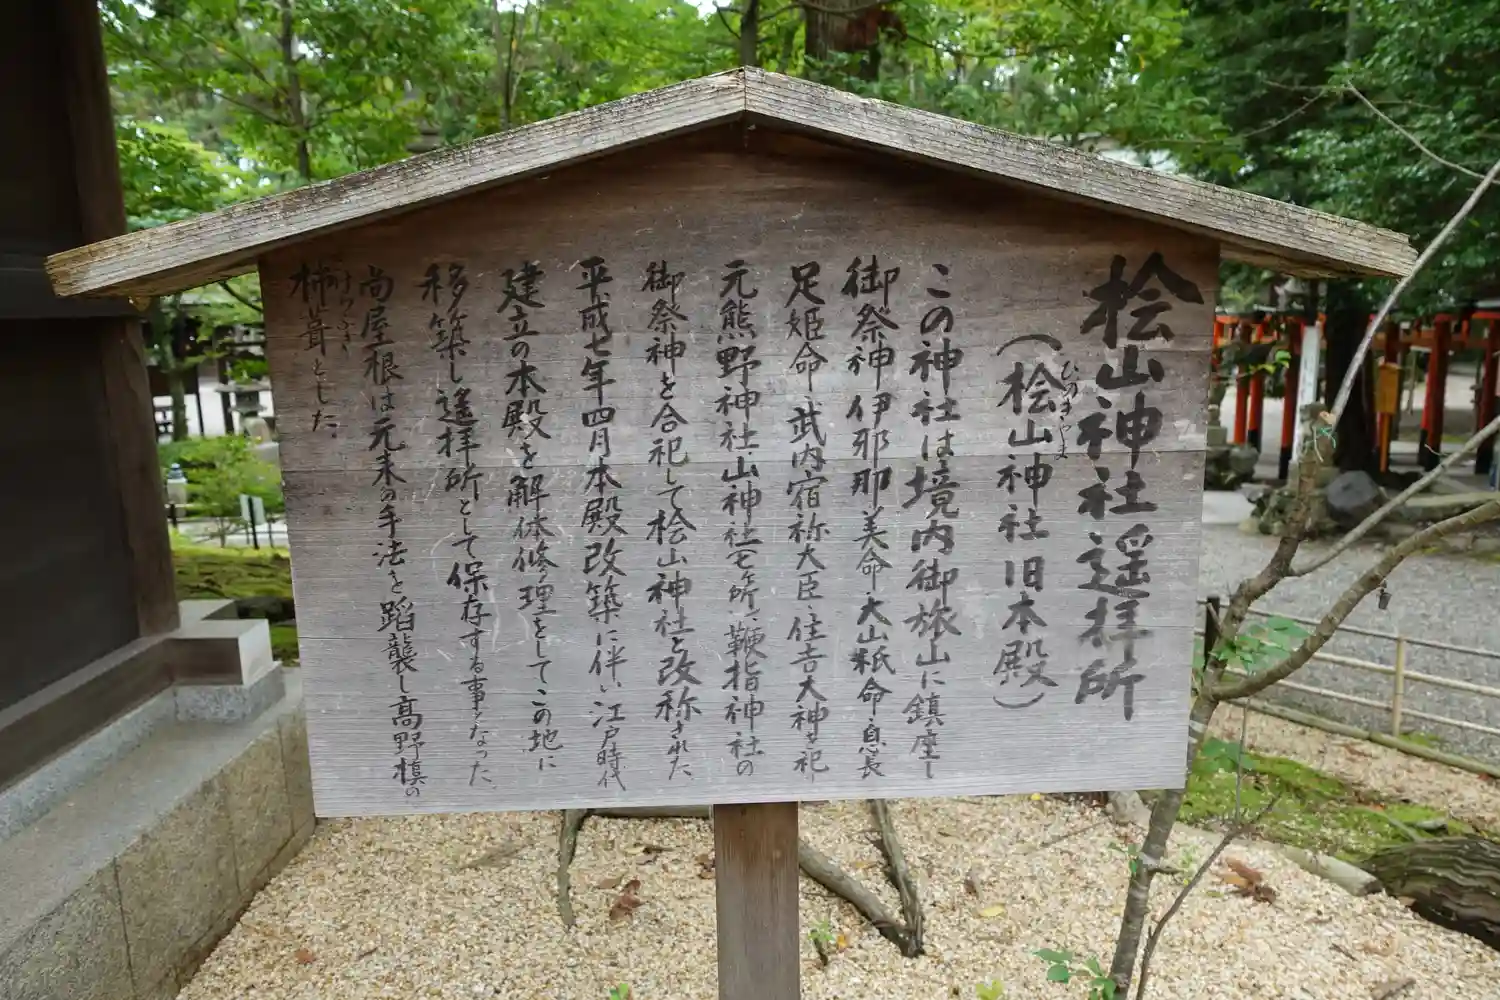 桧山神社遥拝所
(桧山神社 旧本殿)
ひのきやま
この神社は境内御旅山に鎮座し
御祭神 伊邪那美命・大山祇命・息長
足姫命・武内宿祢大臣・住吉大神を祀
元熊野神社、山神社七ヶ所、鞭指神社の
御祭神を合祀して桧山神社と改称された
平成七年四月本殿改築に伴い江戸時代
建立の本殿を解体修理をしてこの地に
移築し遥拝所として保存する事となった。
尚屋根は元来の手法を蹈襲し高野槙の
柿葺とした。
こけらぶき